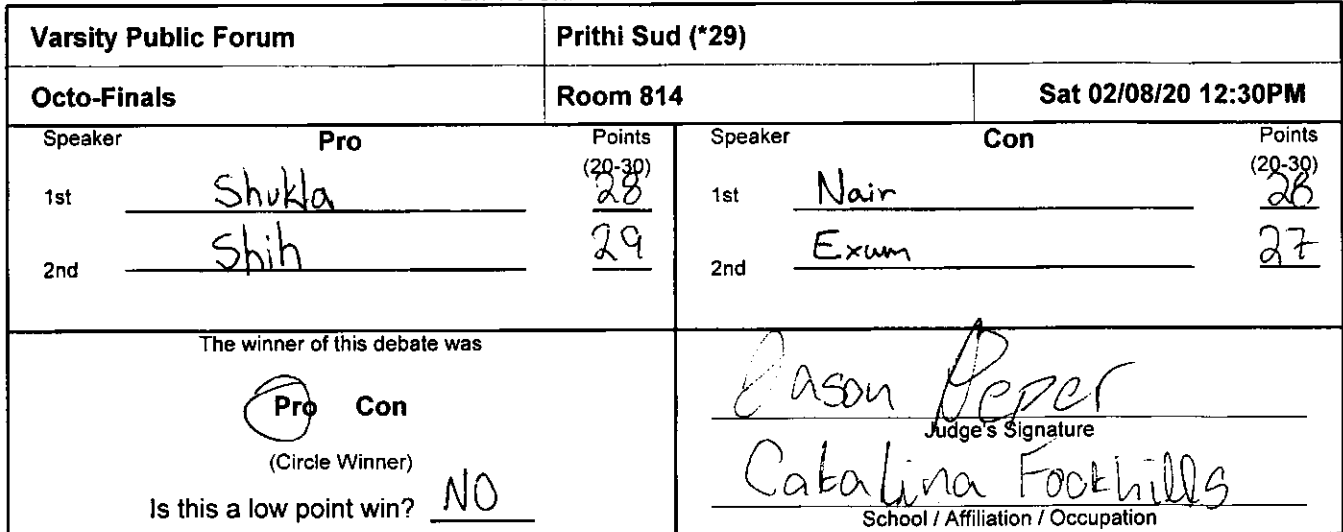 Varsity Public Forum Prithi Sud (*29)
Octo-Finals Room 814 Sat 02/08/20 12:30PM
Speaker Pro Points Speaker Con Points
(20-30) (20-30)
1st Shukla 28 1st Nair 28
2nd Shih 29 2nd Exum 27
The winner of this debate was
Pro Con
(Circle Winner)
Is this a low point win? NO
Jason
Judge's Signature
Catalina Foothills
School / Affiliation / Occupation